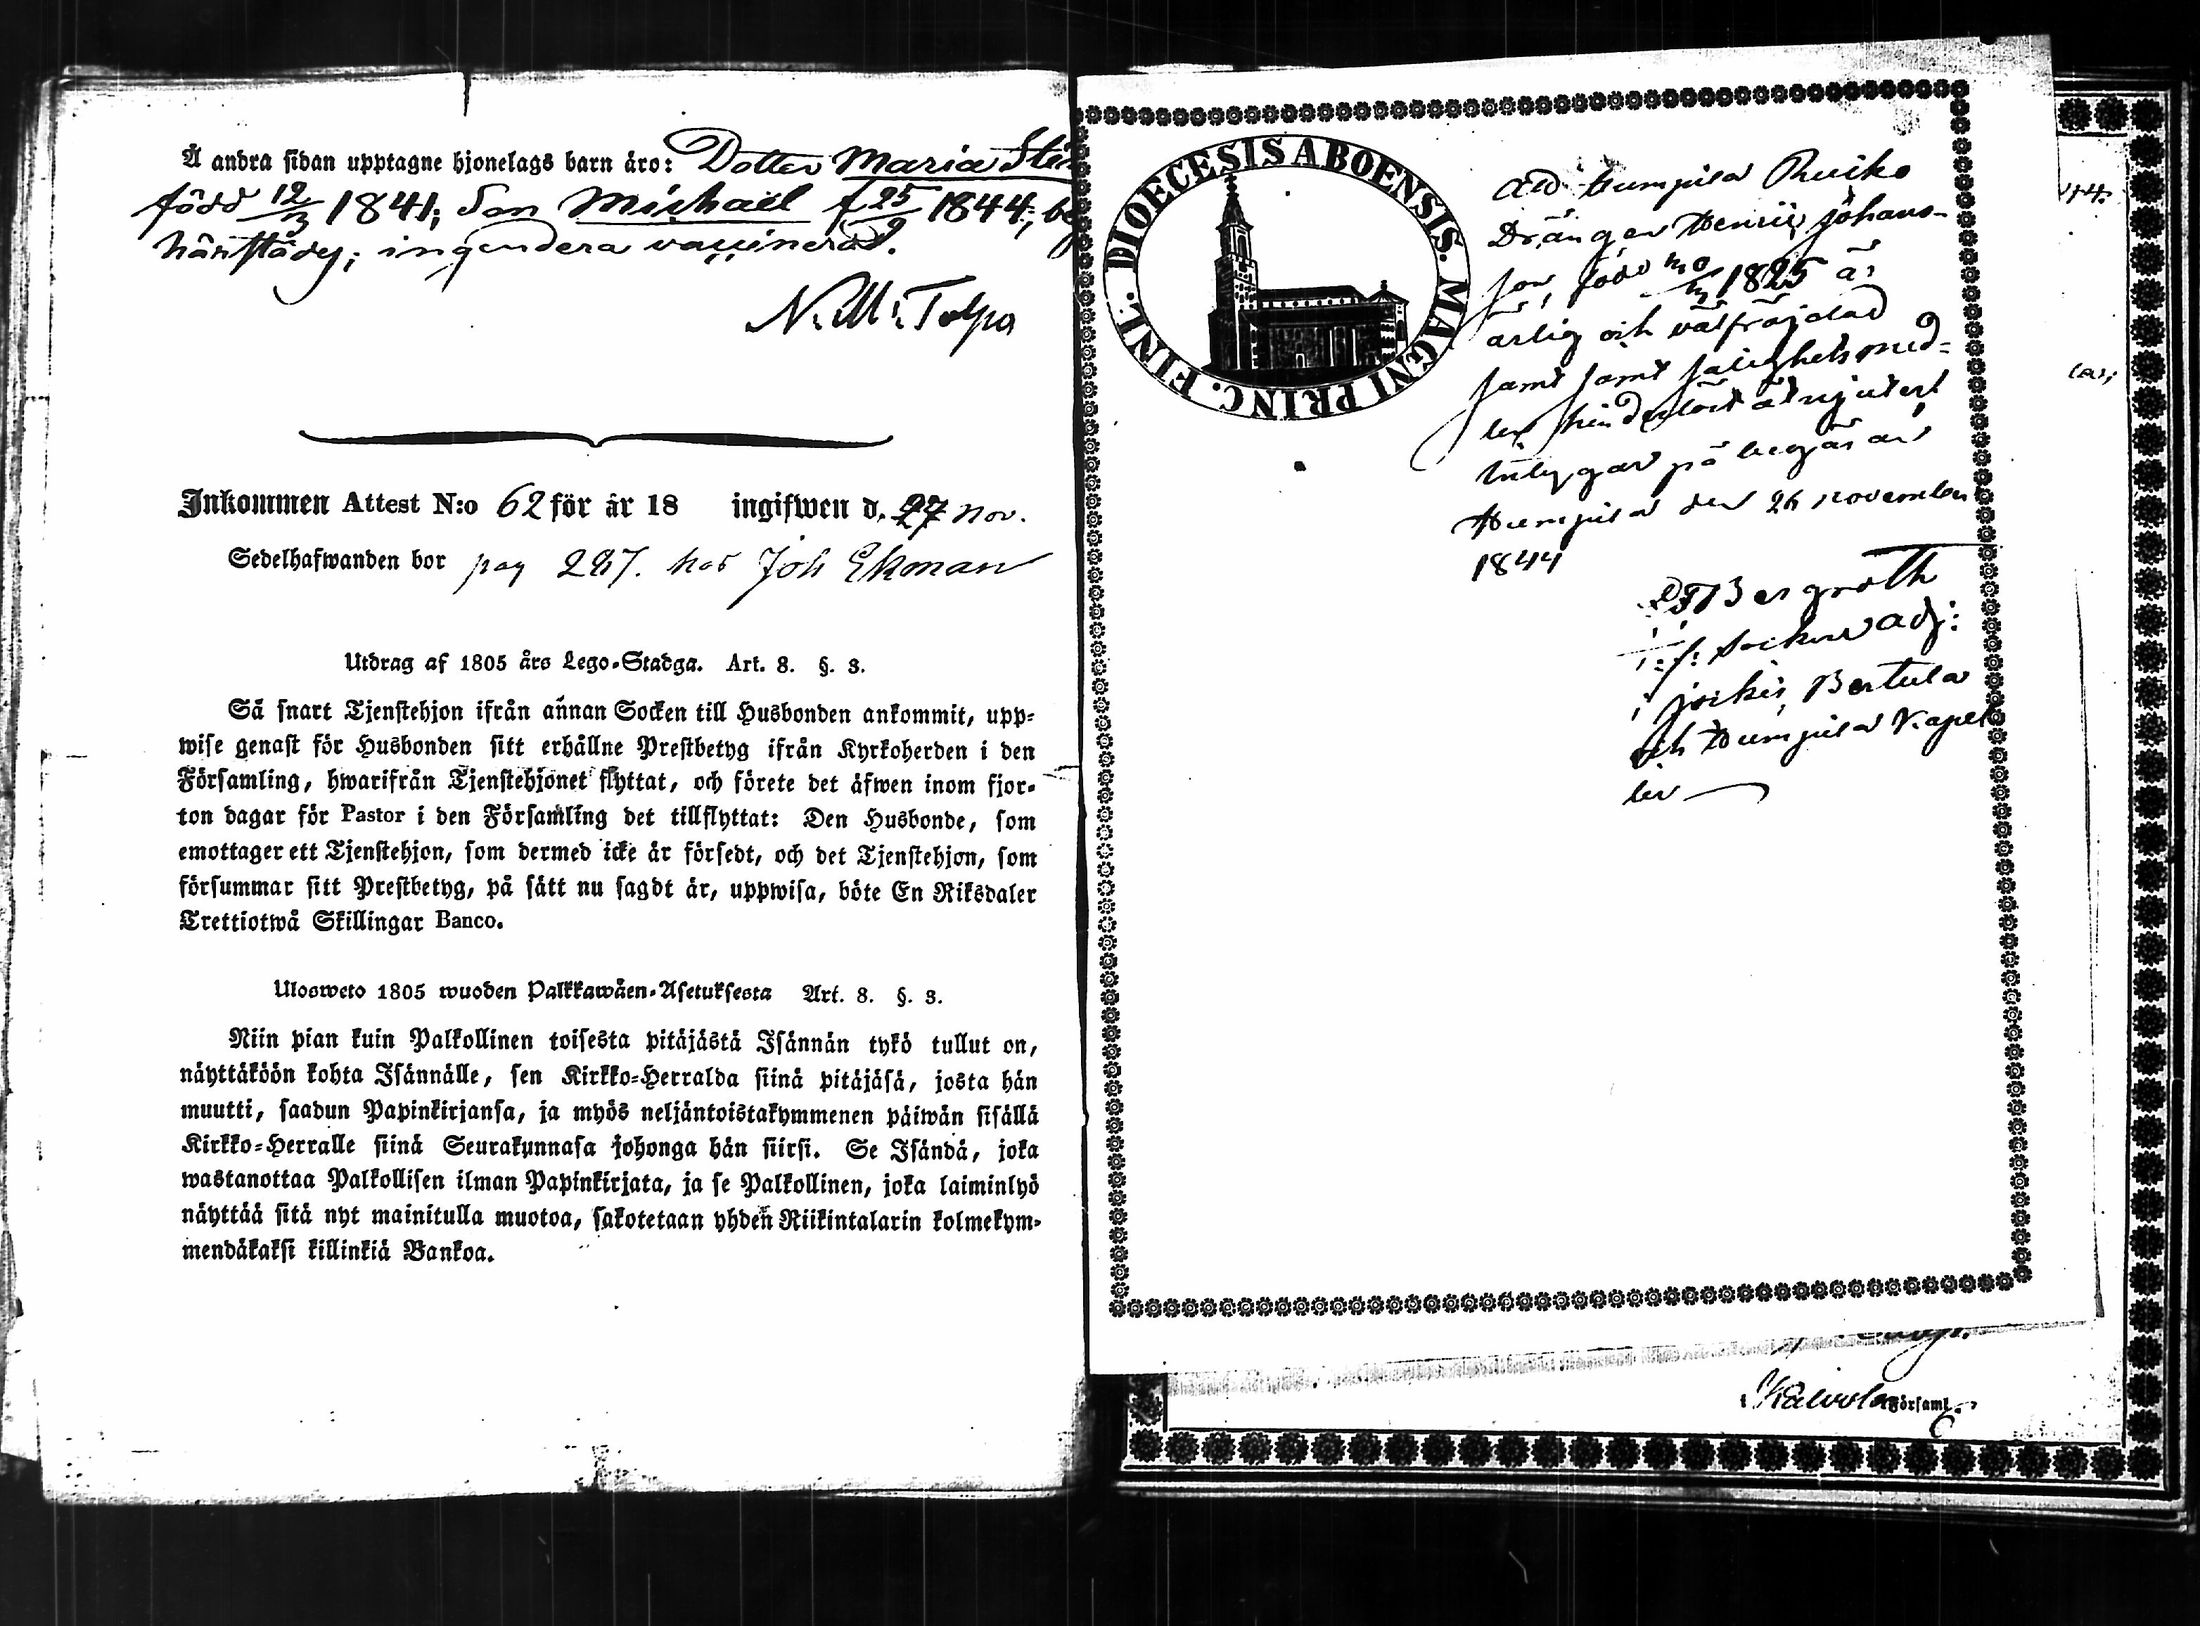 Å andra sidan upptagne hjonelags barn äro: Dotter Maria
född 12/3 1841; Son Michaël f 25/9 1844;
härstädes; ingendera vaccinerad.
N. M. Tolpo
Inkommen Attest N:o 62 för år 18 ingifwen d. 27 Nov.
Sedelhafwanden bor pag 287. hos Joh Ekman
Utdrag af 1805 års Lego-Stadga. Art. 8. §. 3.
Så snart Tjenstehjon ifrån annan Socken till Husbonden ankommit, upp-
wise genast för Husbonden sitt erhållne Prestbetyg ifrån Kyrkoherden i den
Församling, hwarifrån Tjenstehjonet flyttat, och förete det äfwen inom fjor-
ton dagar för Pastor i den Församling det tillflyttat: Den Husbonde, som
emottager ett Tjenstehjon, som dermed icke är försedt, och det Tjenstehjon, som
försummar sitt Prestbetyg, på sätt nu sagdt är, uppwisa, böte En Riksdaler
Trettiotwå Skillingar Banco.
Ulosweto 1805 wuoden Palkkawäen-Asetuksesta Art. 8. §. 3.
Niin pian kuin Palkollinen toisesta pitäjästä Isännän tykö tullut on,
näyttäköön kohta Isännälle, sen Kirkko-Herralda siinä pitäjäsä, josta hän
muutti, saadun Papinkirjansa, ja myös neljäntoistakymmenen päiwän sisällä
Kirkko-Herralle siinä Seurakunnasa johonga hän siirsi. Se Isändä, joka
wastanottaa Palkollisen ilman Papinkirjata, ja se Palkollinen, joka laiminlyö
näyttää sitä nyt mainitulla muotoa, sakotetaan yhden Riikintalarin kolmekym-
mendäkaksi killinkiä Bankoa.
DIOECESIS ABOENSIS. MAGNI PRINC. FINL.
Humpila Ruiko
Drängen Henric Johans-
son, född 1825 är
ärlig och välfräjdad
samt salighets med-
len hinderlöst åtnjutert
intygar på begäran
Humpila den 26 november
1844
Bergroth
Socken adj:
i jockis, Bertula
och Humpila Kapel
ler
i Kalvola Församl.